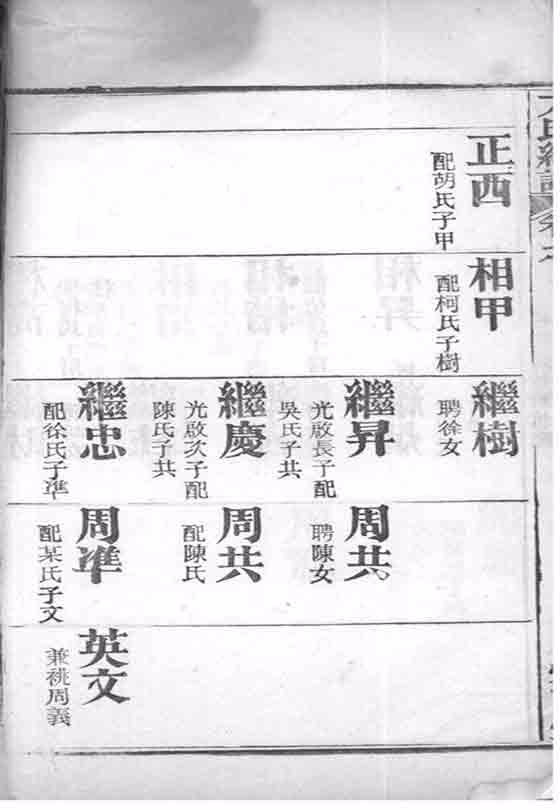 正西
配胡氏子甲
相甲
配柯氏子樹
繼樹
聘徐女
繼昇
光啟長子配
吳氏子共
繼慶
光啟次子配
陳氏子共
繼忠
配徐氏子準
周共
聘陳女
周共
配陳氏
周準
配某氏子文
英文
兼祧周義